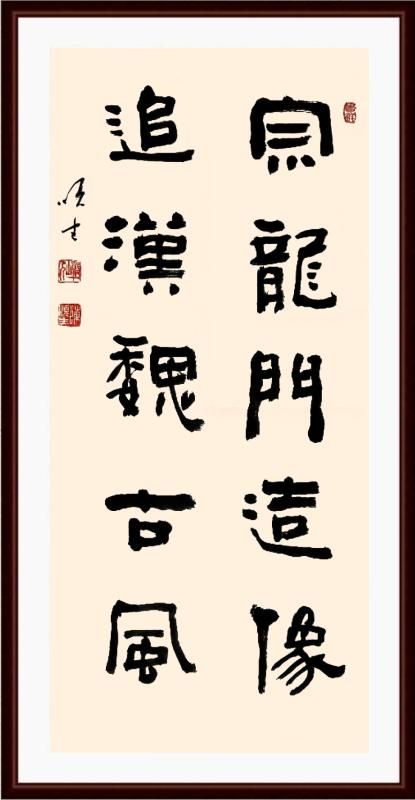 宗龍門造像
追漢魏古風